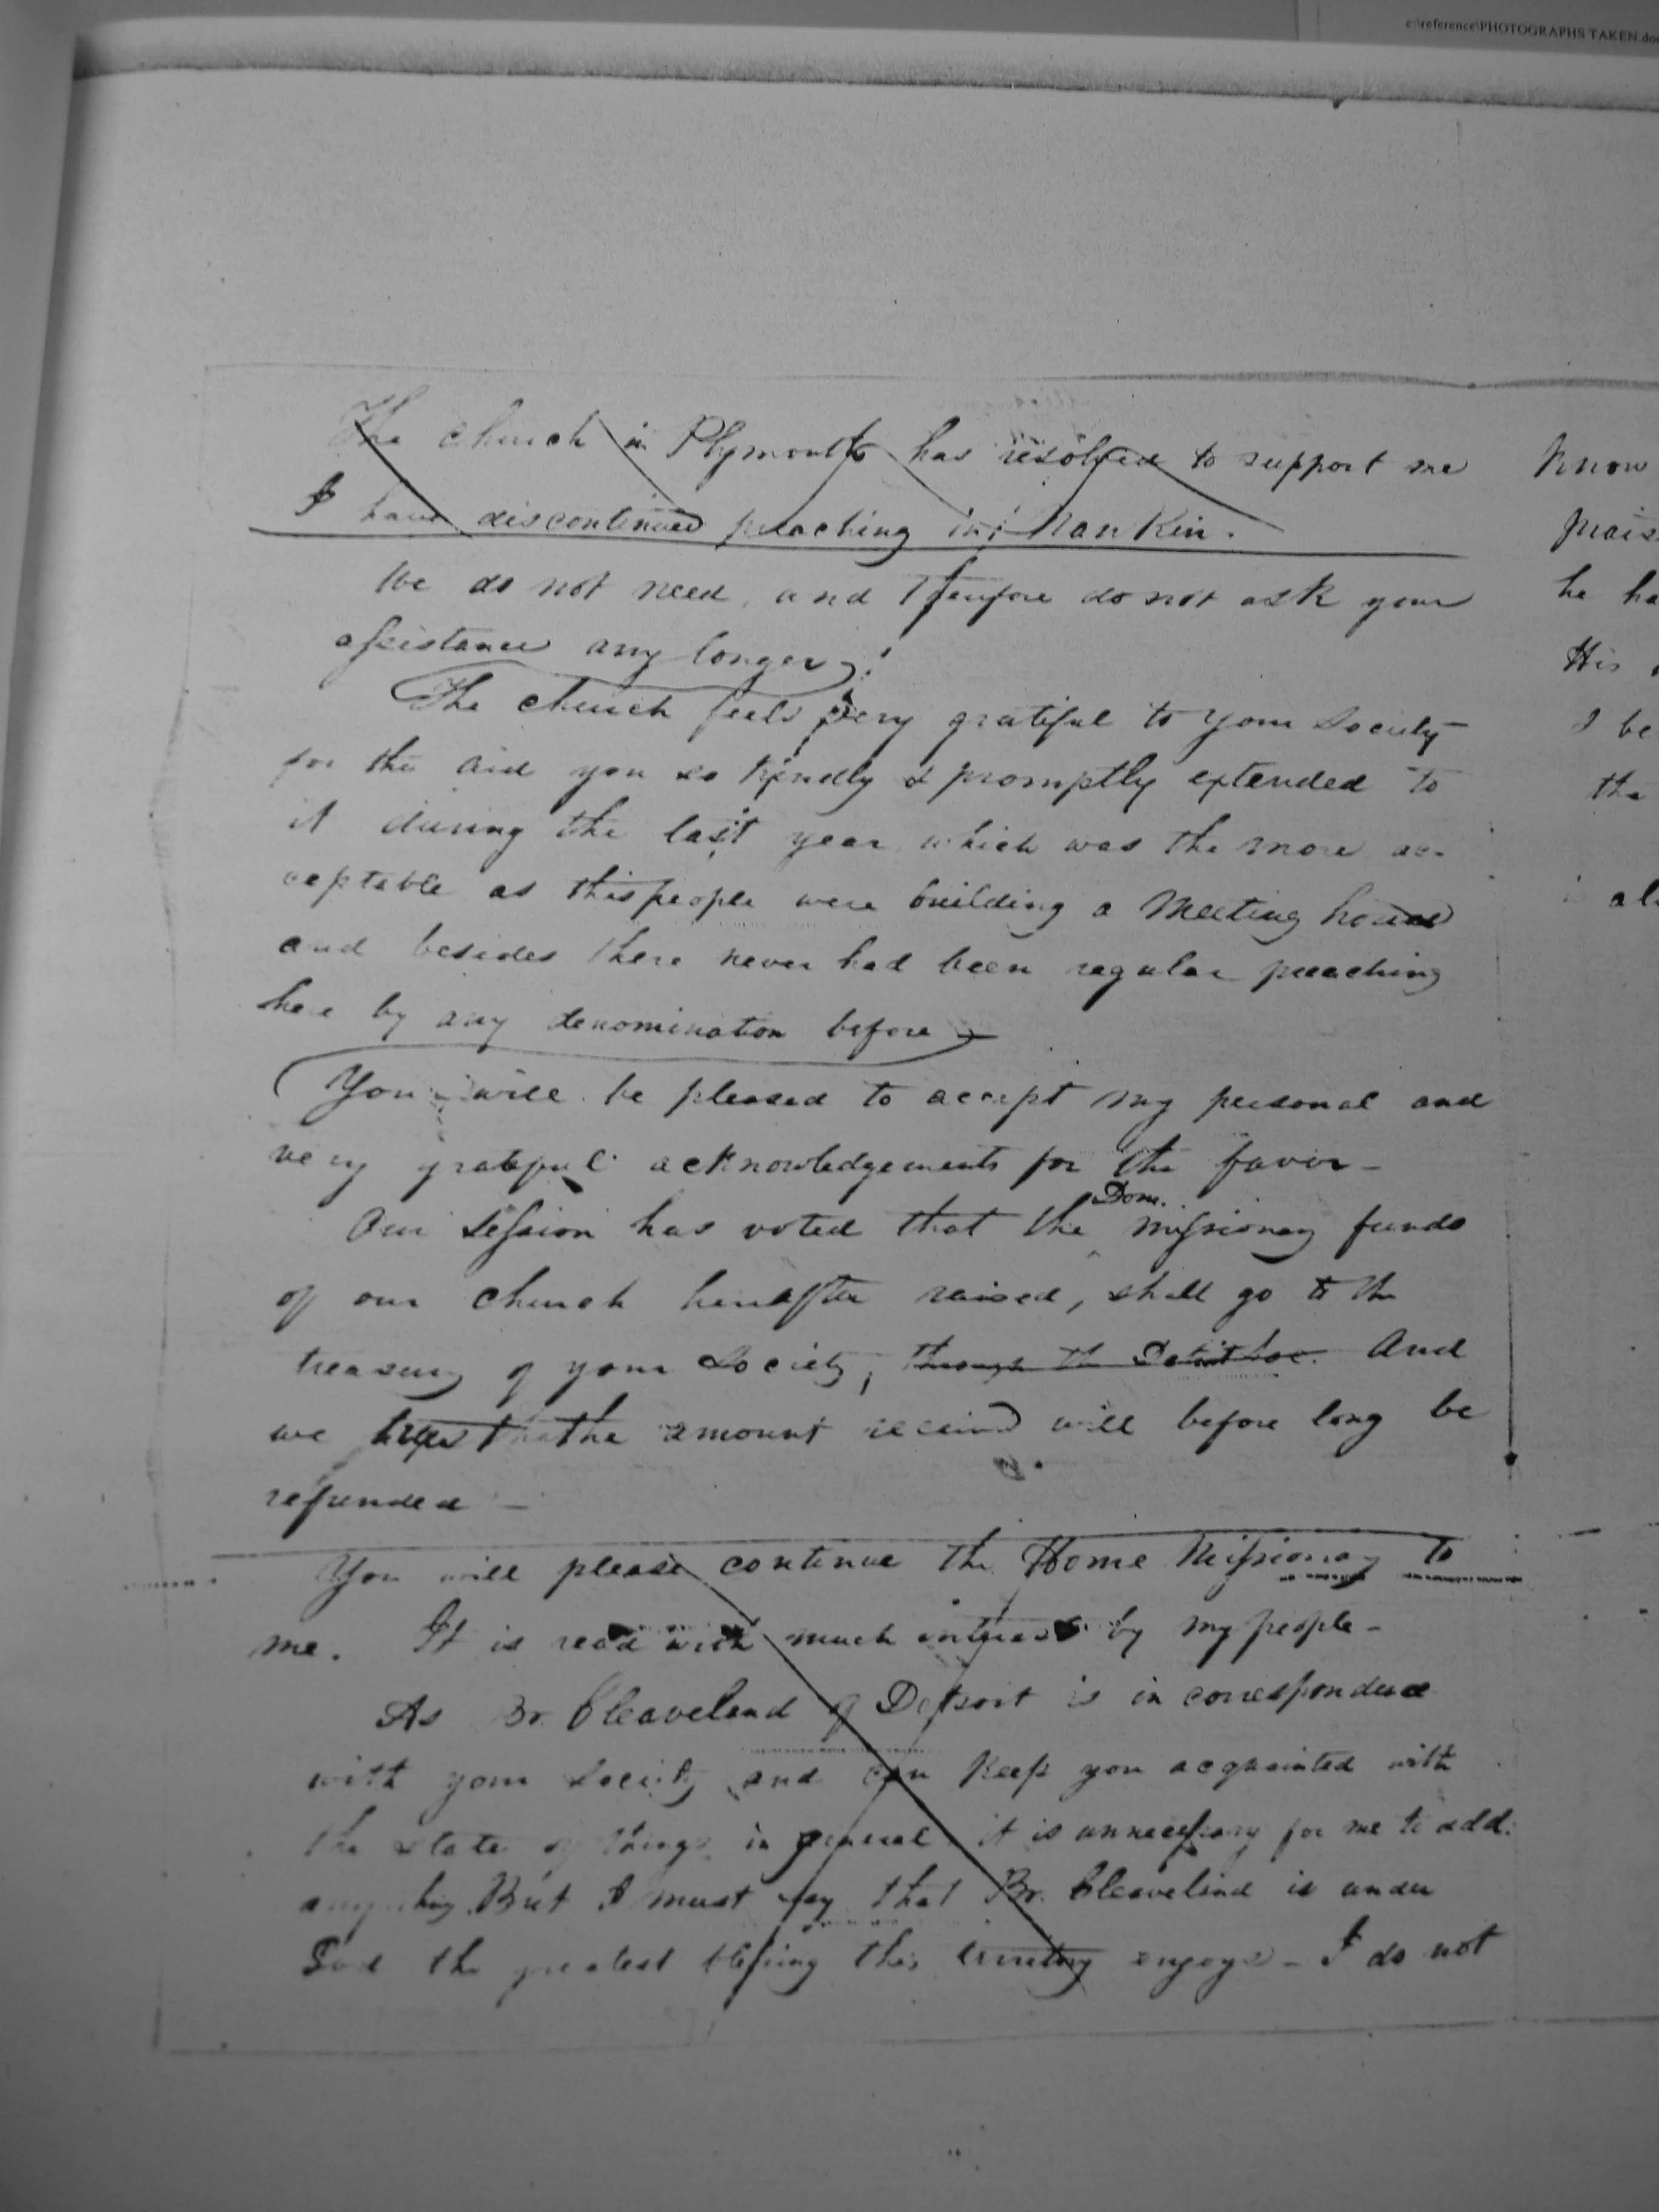 c:\reference\PHOTOGRAPHS TAKEN.doc
The church in Plymouth has resolved to support me
I have discontinued preaching in Nankin.
We do not need, and therefore do not ask your
assistance any longer.
The church feels very grateful to your Society
for the aid you so kindly & promptly extended to
it during the last year which was the more ac-
ceptable as this people were building a Meeting house
and besides there never had been regular preaching
here by any denomination before
You will be pleased to accept my personal and
very grateful acknowledgements for the favor -
Dom.
Our Session has voted that the missionary funds
of our church hereafter raised, shall go to the
treasury of your Society, through the Detroit Soc. And
we hope that the amount received will before long be
refunded -
You will please continue the Home Missionary to
me. It is read with much interest by my people -
As Br. Cleaveland of Detroit is in correspondence
with your Society and can keep you acquainted with
the state of things in general it is unnecessary for me to add
anything. But I must say that Br. Cleaveland is under
God the greatest blessing this territory enjoys - I do not
know
prais
he ha
His
I be
the
al